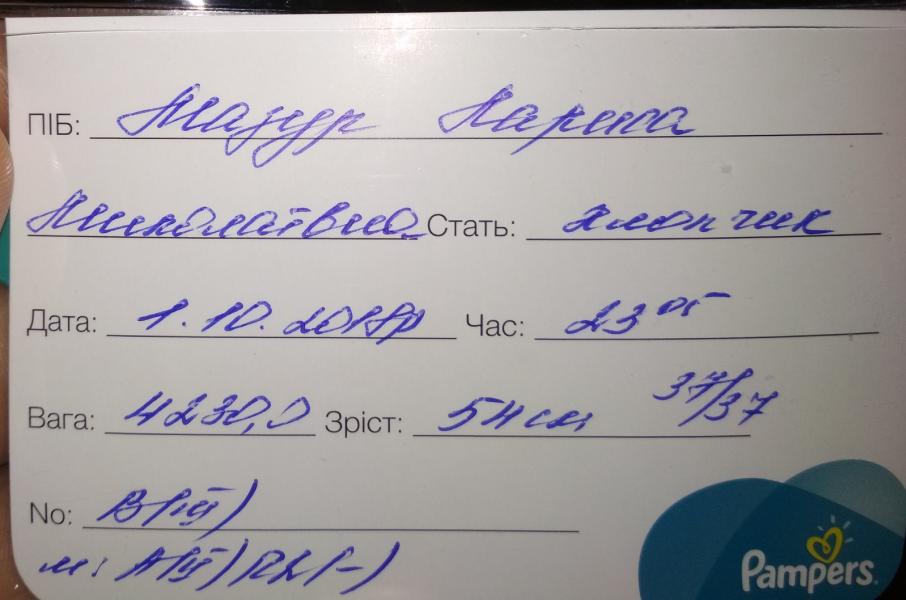 ПІБ: Мазур
Миколаївна Стать: хлопчик
Дата: 1.10.2018р Час: 23 05
Вага: 4230,0 Зріст: 54 см 37/37
No: В(ІІІ)
м: А(ІІ) Rh(-)
Pampers